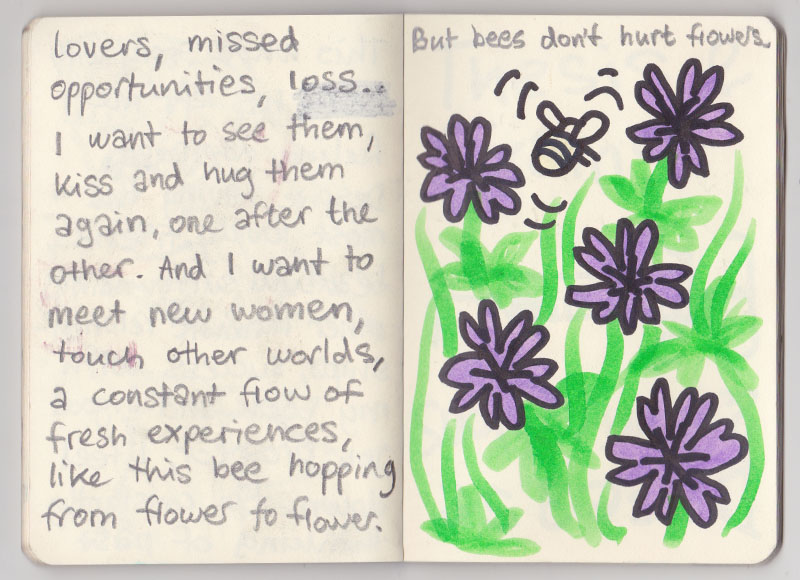 lovers, missed
opportunities, loss...
I want to see them,
kiss and hug them
again, one after the
other. And I want to
meet new women,
touch other worlds,
a constant flow of
fresh experiences,
like this bee hopping
from flower to flower.
But bees don't hurt flowers.